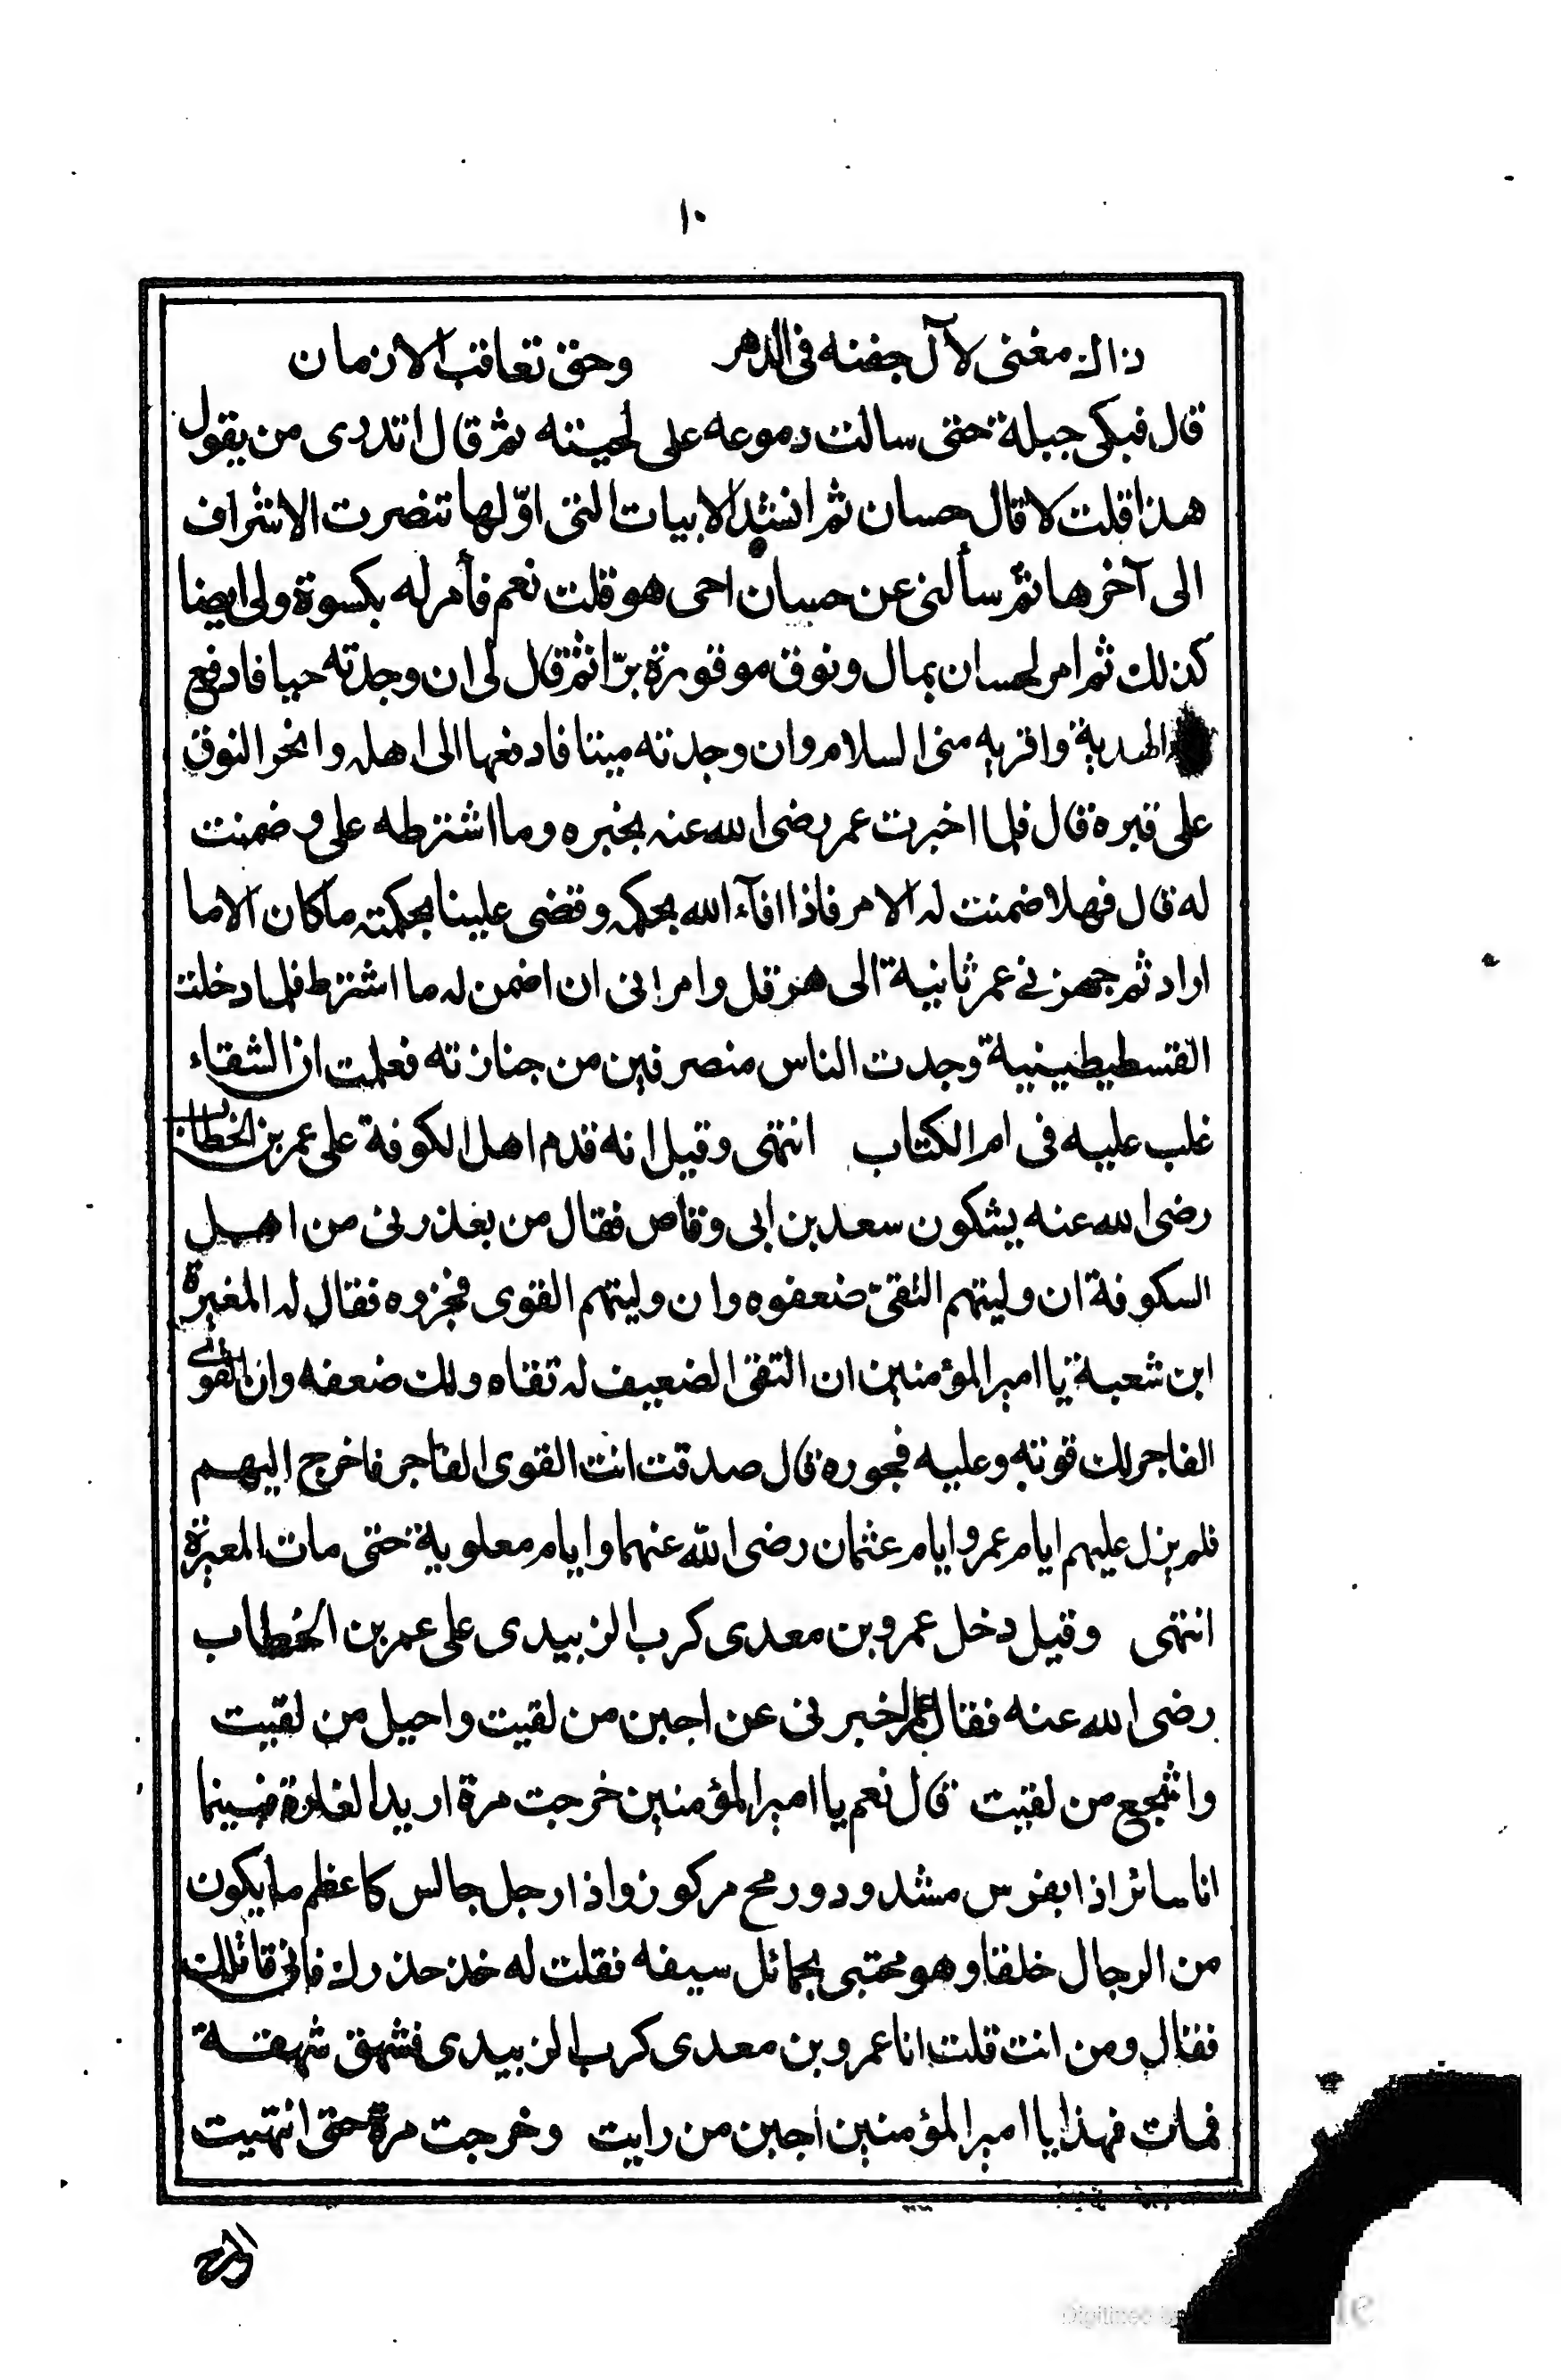 ١٠
ذاك مغنى لآل جفنه فى الدهر وحق تعاقب الازمان
قال فبكى جبلة حتى سالت دموعه على لحيته ثم قال اتدرى من يقول
هذا قلت لا قال حسان ثم انشد الابيات التى اوّلها تنصرت الاشراف
الى آخرها ثم سألنى عن حسان احى هو قلت نعم فأمر له بكسوة ولى ايضا
كذلك ثم امر لحسان بمال ونوق موقورة برّا ثم قال لى ان وجدته حيا فادفع
الهدية واقريه منى السلام وان وجدته ميتا فادفعها الى اهله وانحر النوق
على قبره قال فلما اخبرت عمر رضى الله عنه بخبره وما اشترطه على وضمنت
له قال فهلا ضمنت له الامر فاذا افآء الله بحكمه وقضى علينا بحكمته ماكان الاما
اراد ثم جهزنى عمر ثانية الى هرقل وامرانى ان اضمن له ما اشترط فلما دخلت
القسطيطينية وجدت الناس منصرفين من جنازته فعلمت ان الشقاء
غلب عليه فى ام الكتاب انتهى وقيل انه قدم اهل الكوفة على عمر بن الخطاب
رضى الله عنه يشكون سعد بن ابى وقاص فقال من يعذرنى من اهل
الكوفة ان وليتهم التقىّ ضعفوه وان وليتهم القوى فجروه فقال له المغيرة
ابن شعبة يا امير المؤمنين ان التقى الضعيف له تقاه ولك ضعفه وان القوى
الفاجر لك قوته وعليه فجوره قال صدقت انت القوى الفاجر فاخرج اليهم
فلم يزل عليهم ايام عمر وايام عثمان رضى الله عنهما وايام معاوية حتى مات المغيرة
انتهى وقيل دخل عمرو بن معدى كرب الزبيدى على عمر بن الخطاب
رضى الله عنه فقال عمر اخبرنى عن اجبن من لقيت واحيل من لقيت
واشجع من لقيت قال نعم يا امير المؤمنين خرجت مرة اريد الغارة فبينما
انا سائر اذا بفرس مشدود ورمح مركوز واذا رجل جالس كاعظم ما يكون
من الرجال خلقا وهو محتبى بحمائل سيفه فقلت له خذ حذرك فانى قاتلك
فقال ومن انت قلت انا عمرو بن معدى كرب الزبيدى فشهق شهقة
فمات فهذا يا امير المؤمنين اجبن من رايت وخرجت مرة حتى انتهيت